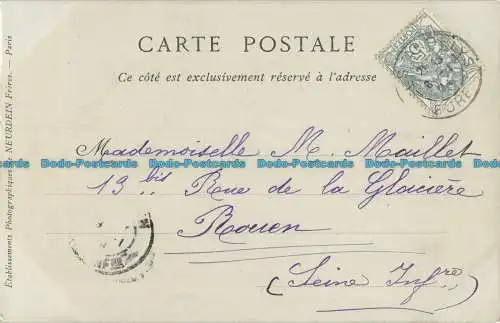 CARTE POSTALE
Ce côté est exclusivement réservé à l'adresse
Mademoiselle M. Maillet
13 bis Rue de la Glacière
Rouen
(Seine Infre)
Etablissements Photographiques de NEURDEIN Frères. — Paris
Dodo-Postcards Dodo-Postcards Dodo-Postcards Dodo-Postcards
Dodo-Postcards Dodo-Postcards Dodo-Postcards Dodo-Postcards